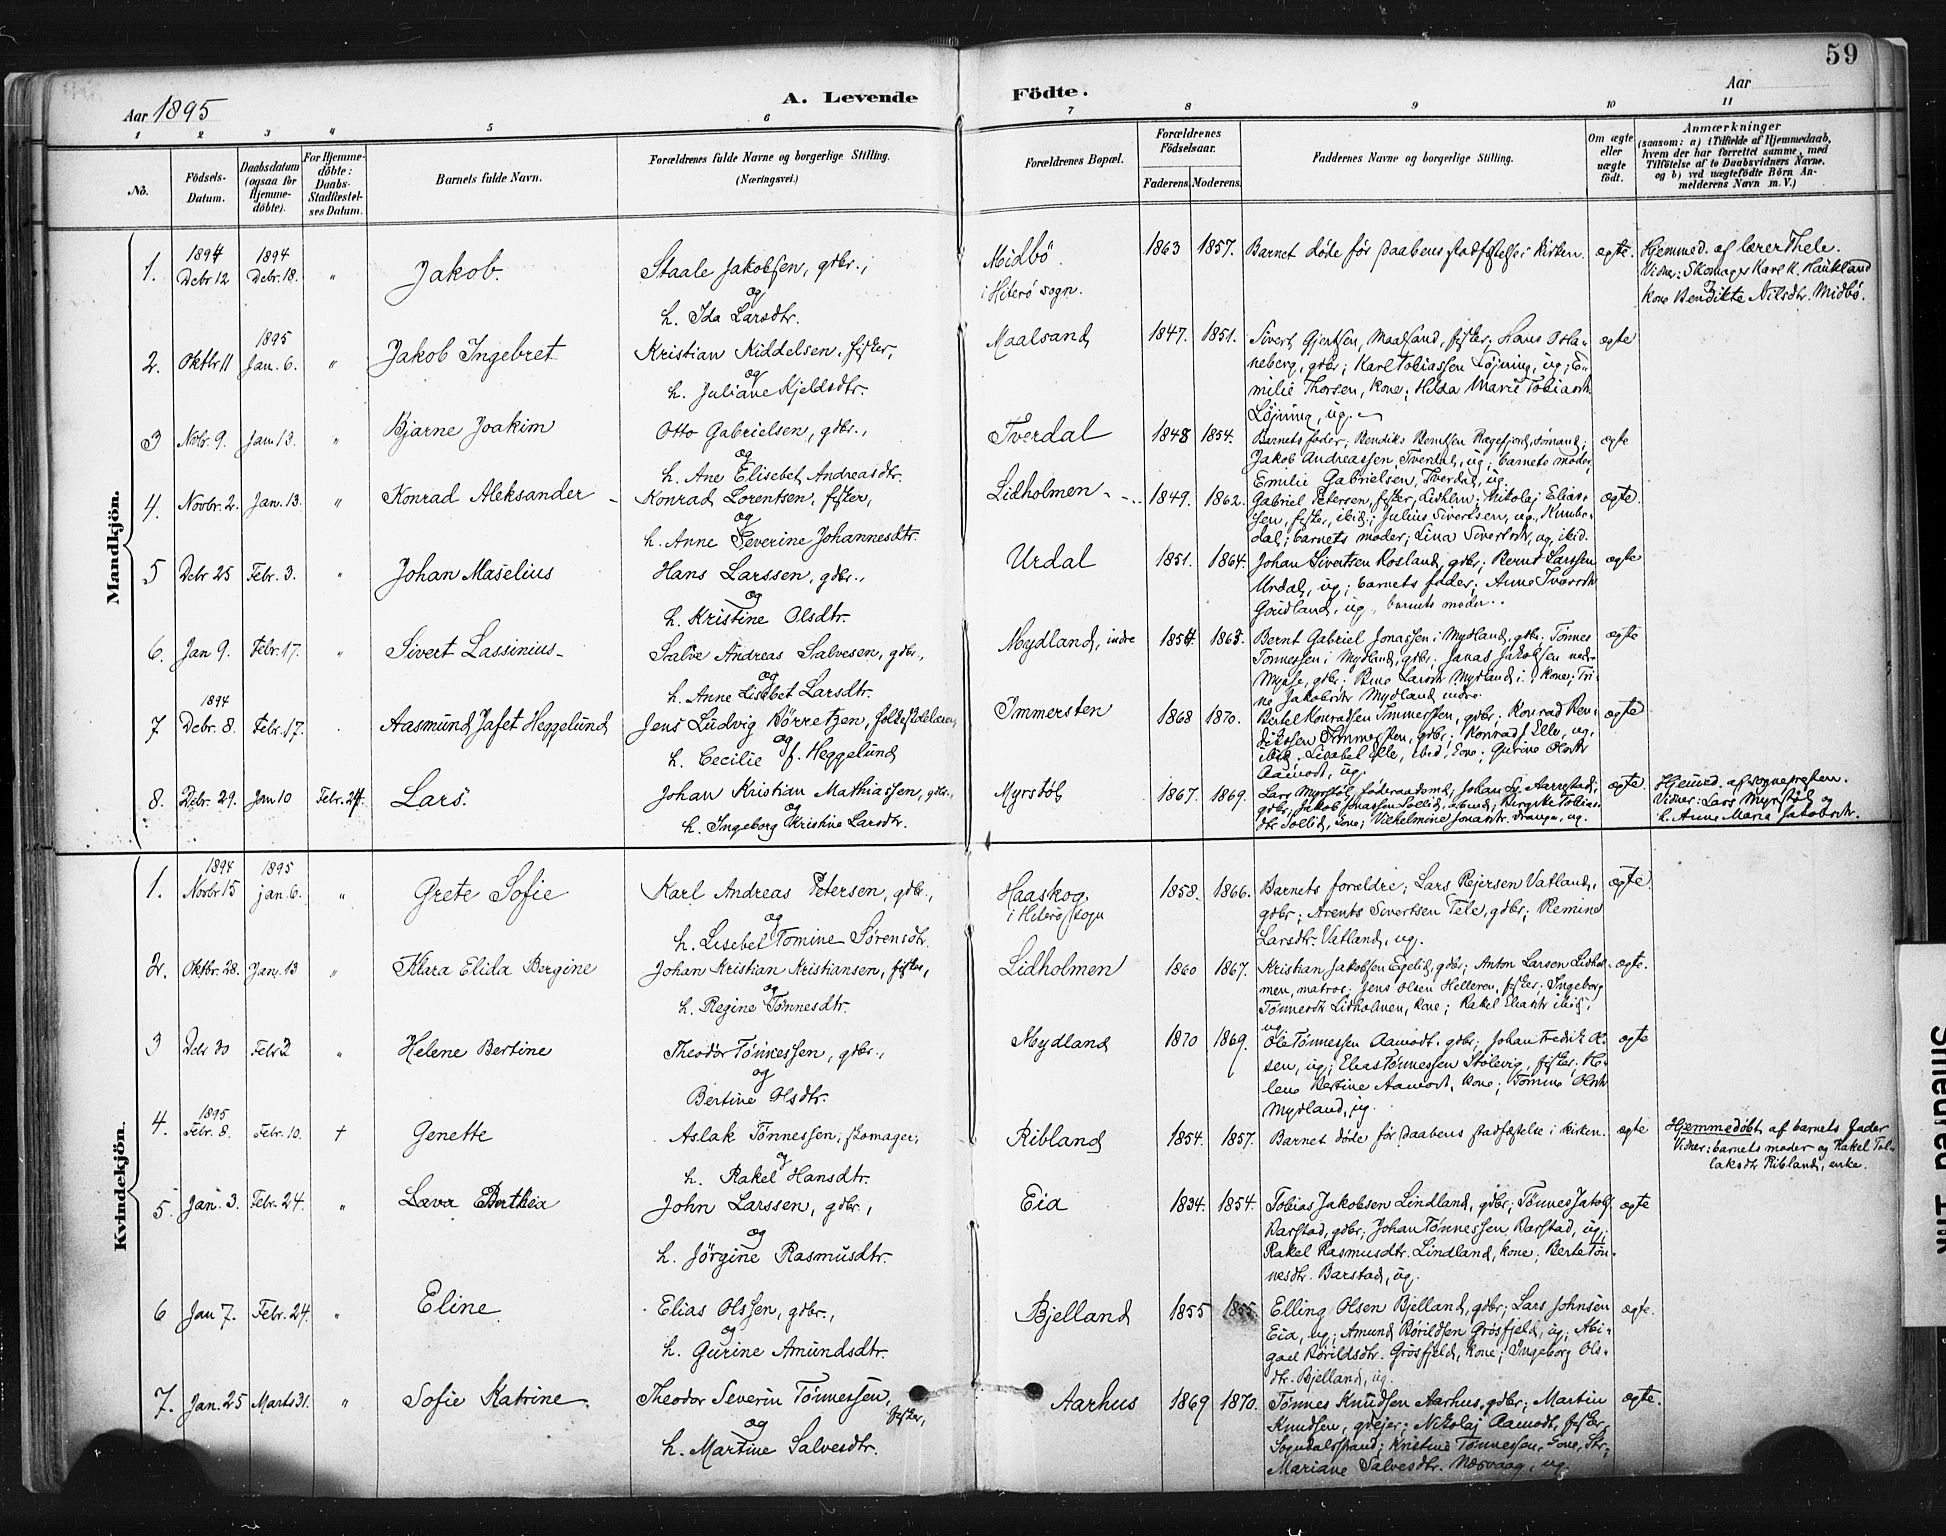 59
Aar 1895
A. Levende Födte.
Aar
1 2 3 4 5 6 7 8 9 10 11
No.
Födsels-Datum.
Daabsdatum (ogsaa for Hjemme-döbte).
For Hjemme-döbte: Daabs-Stadfæstel-ses Datum.
Barnets fulde Navn.
Forældrenes fulde Navne og borgerlige Stilling. (Næringsvei.)
Forældrenes Bopæl.
Forældrenes Födselsaar.
Faderens. Moderens.
Faddernes Navne og borgerlige Stilling.
Om ægte eller uægte födt.
Anmærkninger
(saasom: a) i Tilfælde af Hjemmedaab, hvem der har forrettet samme, med Tilföielse af to Daabsvidners Navne, og b) ved uægtefödte Börn An-melderens Navn m. V.)
Mandkjön.
1. 1894 Debr 12 1894 Debr. 18. " Jakob. Staale Jakobsen, gdbr., og h. Ida Larsdtr. Midbö i Hiterö sogn. 1863 1857. Barnet døde før daabens stadfæstelse i kirken. ægte. Hjemmed. af lærer Thele.
Vidner: Skomager Karl K. Haukland
og kone Bendikte Nilsdtr. Midbö.
2. Oktbr 11 1895 Jan. 6. " Jakob Ingebret Kristian Kiddelsen, fisker, og h. Juliane Kjeldsdtr. Maalsand 1847. 1851. Sivert Gjertsen, Maalsand, fisker; Hans O. Ha-
neberg, gdbr; Karl Tobiassen Løjning, ug; E-
milie Thorsen, kone; Hilda Marie Tobiasdtr.
Løjning, ug. ægte
3 Novbr. 9. Jan 13. " Bjarne Joakim Otto Gabrielsen, gdbr., og h. Ane Elisebet Andreasdtr. Tverdal 1848 1854. Barnets fader, Bendiks Berntsen Rægefjord, sømand;
Jakob Andreassen, Tverdal, ug; barnets moder,
Emilie Gabrielsen, Tverdal, ug. ægte
4. Novbr. 2. Jan. 13. " Konrad Aleksander Konrad Lorentsen, fisker, og h. Anne Severine Johannesdtr. Lidholmen 1849. 1862. Gabriel Petersen, fisker, Lidhlm; Nikolaj Elias-
sen, fisker, ibid; Julius Sivertsen, ug.,
barnets moder; Lina Sivertsdtr, ug, ibid. ægte.
5 Debr 25 Febr. 3. " Johan Maselius Hans Larssen, gdbr., og h. Kristine Olsdtr. Urdal 1851. 1864. Johan Sivertsen Rosland, gdbr; Bernt Larssen
Urdal, ug; barnets fader; Anne
ug, barnets moder. ægte
6. Jan 9. Febr. 17. " Sivert Lassinius Salve Andreas Salvesen, gdbr., og h. Anne Lisebet Larsdtr. Mydland, indre 1854. 1863. Bernt Gabriel Jonassen i Mydland, gdbr. Tønnes
Tønnessen i Mydland, gdbr; Jonas Jakobsen nedr.
gdbr. Larsdtr Mydland i. kone; Tri-
ne Jakobsdtr Mydland indre. ægte
7 1894 Debr. 8. Febr. 17. Aasmund Jafet Heggelund Jens Ludvig Börretzen, folkeskolelærer, og h. Cecilie f. Heggelund Immersten 1868 1870. Bertel Konradsen Immersten, gdbr; Konrad Ben-
diksen Immersten, gdbr; Konrad J Elle, ug,
ibid; Lisabet Elle, ibid, kone; Gurine Olsdtr
Aamodt, ug. ægte
8. Debr. 29. Jan 10 Febr. 24. Lars. Johan Kristian Mathiassen, gdbr., og h. Ingeborg Kristine Larsdtr. Myrstöl 1867. 1869. Lars Myrstöl, føderaadsmd; Johan Aarrestad,
gdbr; Jakob Jonassen Sollid, Tobias-
dtr Sollid, kone; Vilhelmine Jonasdtr. Drange, ug. ægte. Hjemmed. af sognepresten.
Vidner: Lars Myrstöl og
h. Anne Maria Jakobsdtr.
Kvindekjön.
1. 1894 Novbr 15 1895 jan. 6. " Grete Sofie Karl Andreas Petersen, gdbr., og h. Lisebet Tomine Sørensdtr. Haaskog i Hiterö sogn 1858. 1866. Barnets forældre; Lars Rejersen Vatland,
gdbr; Arents Sivertsen Tele, gdbr; Remine
Larsdtr. Vatland, ug. ægte.
2. Oktbr. 28. Jan. 13 " Klara Elida Bergine Johan Kristian Kristiansen, fisker, og h. Regine Tønnesdtr. Lidholmen 1860 1867. Kristian Jakobsen Egelid, gdbr; Anton Larsen Lidhol-
men, matros; Jens Olsen Helleren, fisker; Ingeborg
Tønnesdtr Lidholmen, kone; Rakel Eliasdtr ibid,
ug. ægte.
3 Debr 30 Febr 3 " Helene Bertine Theodor Tønnessen, gdbr., og Bertine Olsdtr. Mydland 1870 1869. Ole Tønnessen Aamodt, gdbr; Johan Fredrik
sen, ug; Elias Tønnessen Stölevig, fisker; He-
lene Bertine Aamodt, kone; Tomine Olsdtr
Mydland, ug. ægte
4. 1895 Febr. 8. Febr. 10. † Genette Aslak Tønnessen, skomager, og h. Rakel Hansdtr. Ribland 1854. 1857. Barnet døde før daabens stadfæstelse i kirken. ægte Hjemmedøbt af barnets fader
Vidner: barnets moder og Rakel Tol-
laksdtr Ribland, enke.
5. Jan. 3. Febr. 24. " Lava Berthea John Larssen, gdbr., og h. Jörgine Rasmusdtr. Eia 1834. 1854. Tobias Jakobsen Lindland, gdbr, Tønnes Jakobs.
Barstad, gdbr; Johan Tønnessen Barstad, ug;
Rakel Rasmusdtr. Lindland, kone; Berte Tøn-
nesdtr. Barstad, ug. ægte
6 Jan 7. Febr. 24. " Eline Elias Olssen, gdbr., og h. Gurine Amundsdtr. Bjelland 1855 1855. Elling Olsen Bjelland, gdbr; Lars Johnsen
Eia, ug; Amund Börildsen Grösfjeld, ug; Abi-
gael Börildsdtr. Grösfjeld, kone; Ingeborg Ols-
dtr. Bjelland, ug. ægte.
7. Jan. 25 Marts 31. " Sofie Katrine Theodor Severin Tønnessen, fisker, og h. Martine Salvesdtr. Aarhus 1869 1870. Tønnes Knudsen Aarhus, gdbr; Martin
Knudsen, gdejer; Nikolaj Aamodt, fisker,
Sogndalsstrand; Kristine Tønnessen, kone, Str;
Mariane Salvesdtr. Næsvaag, ug. ægte.